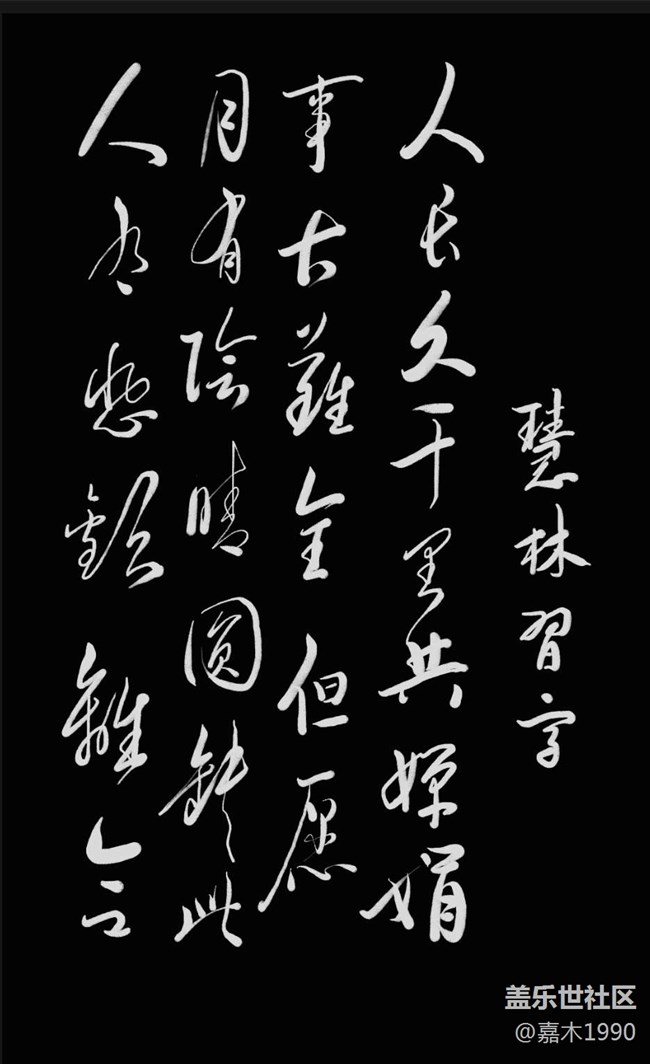 人有悲歡離合
月有陰晴圓缺此
事古難全但愿
人长久千里共婵娟
慧林習字
盖乐世社区
@嘉木1990